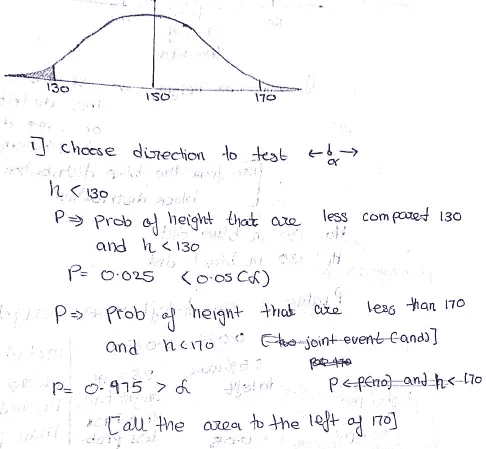 130 150 170
1] choose direction to test ← b/α →
h < 130
P ⇒ prob of height that are less compared 130
and h < 130
P = 0.025 < 0.05 (α)
P ⇒ prob of height that are less than 170
and h < 170 [two joint event (and)]
P = 0.975 > α P < P(170) and h < 170
[all the area to the left of 170]